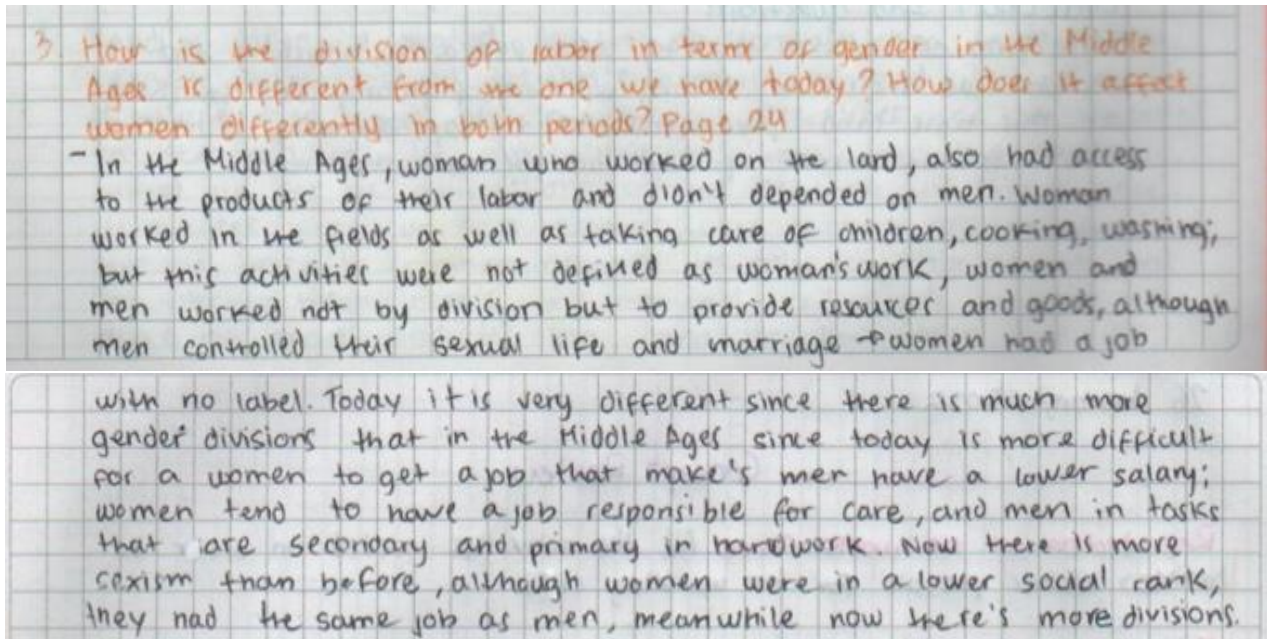 3. How is the division of labor in terms of gender in the Middle
Ages is different from the one we have today? How does it affect
women differently in both periods? Page 24
- In the Middle Ages, woman who worked on the land, also had access
to the products of their labor and didn't depended on men. Woman
worked in the fields as well as taking care of children, cooking, washing;
but this activities were not defined as woman's work, women and
men worked not by division but to provide resources and goods, although
men controlled their sexual life and marriage → women had a job
with no label. Today it is very different since there is much more
gender divisions that in the Middle Ages since today is more difficult
for a women to get a job that make's mer have a lower salary;
women tend to have a job responsible for care, and men in tasks
that are secondary and primary in hardwork. Now there is more
sexism than before, although women were in a lower social rank,
they had the same job as men, meanwhile now there's more divisions.